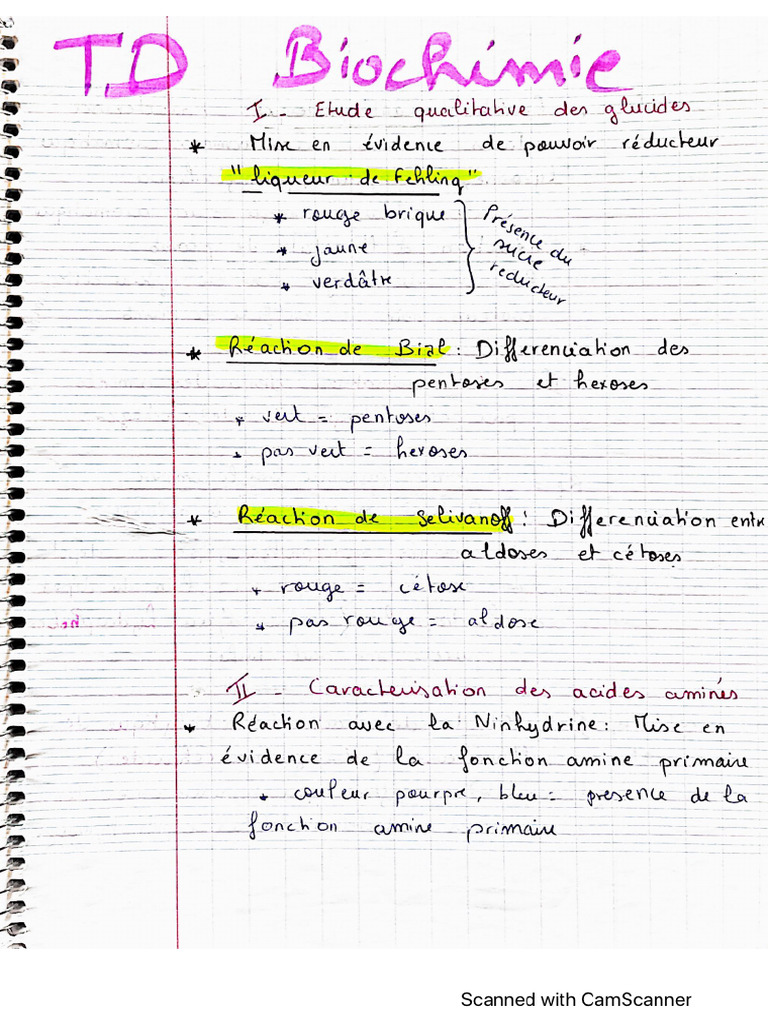 TD Biochimie
I - Etude qualitative des glucides
* Mise en évidence de pouvoir réducteur
"liqueur de Fehling"
* rouge brique
* jaune
* verdâtre
Présence du
sucre
reducteur
* Réaction de Bial : Differenciation des
pentoses et hexoses
* vert = pentoses
* pas vert = hexoses
* Réaction de Selivanoff : Differenciation entr
aldoses et cétoses
* rouge = cétose
* pas rouge = aldose
II - Caracterisation des acides aminés
* Réaction avec la Ninhydrine : Mise en
évidence de la fonction amine primaire
* couleur pourpre, bleu = presence de la
fonction amine primaire
Scanned with CamScanner